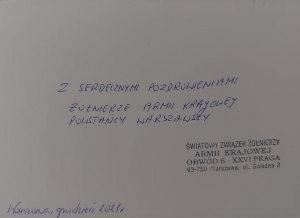 Z SERDECZNYMI POZDROWIENIAMI
ŻOŁNIERZE ARMII KRAJOWEJ
POWSTAŃCY WARSZAWSCY
ŚWIATOWY ZWIĄZEK ŻOŁNIERZY
ARMII KRAJOWEJ
OBWÓD 6 - XXVI PRAGA
03-750 Warszawa, ul. Śnieżna 3
Warszawa, grudzień 2021r